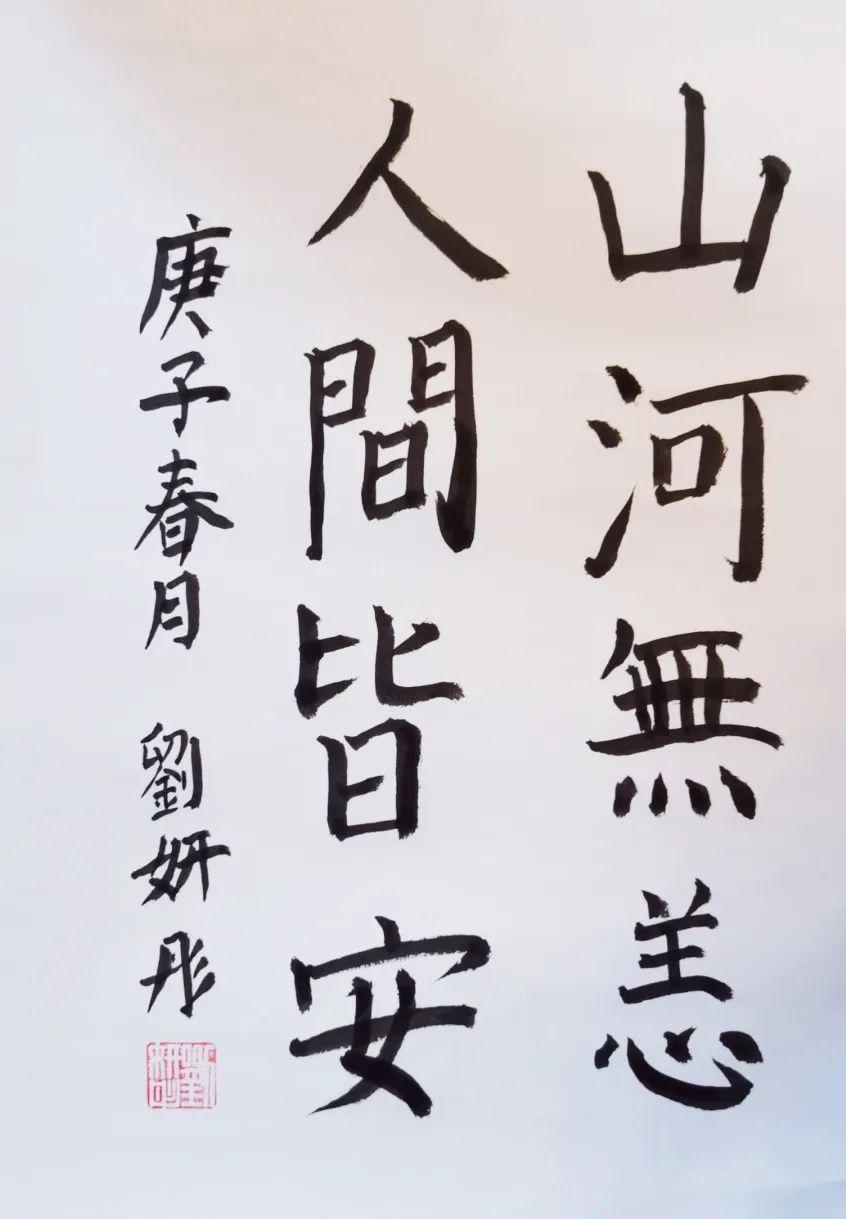 山河無恙
人間皆安
庚子春月 劉妍彤